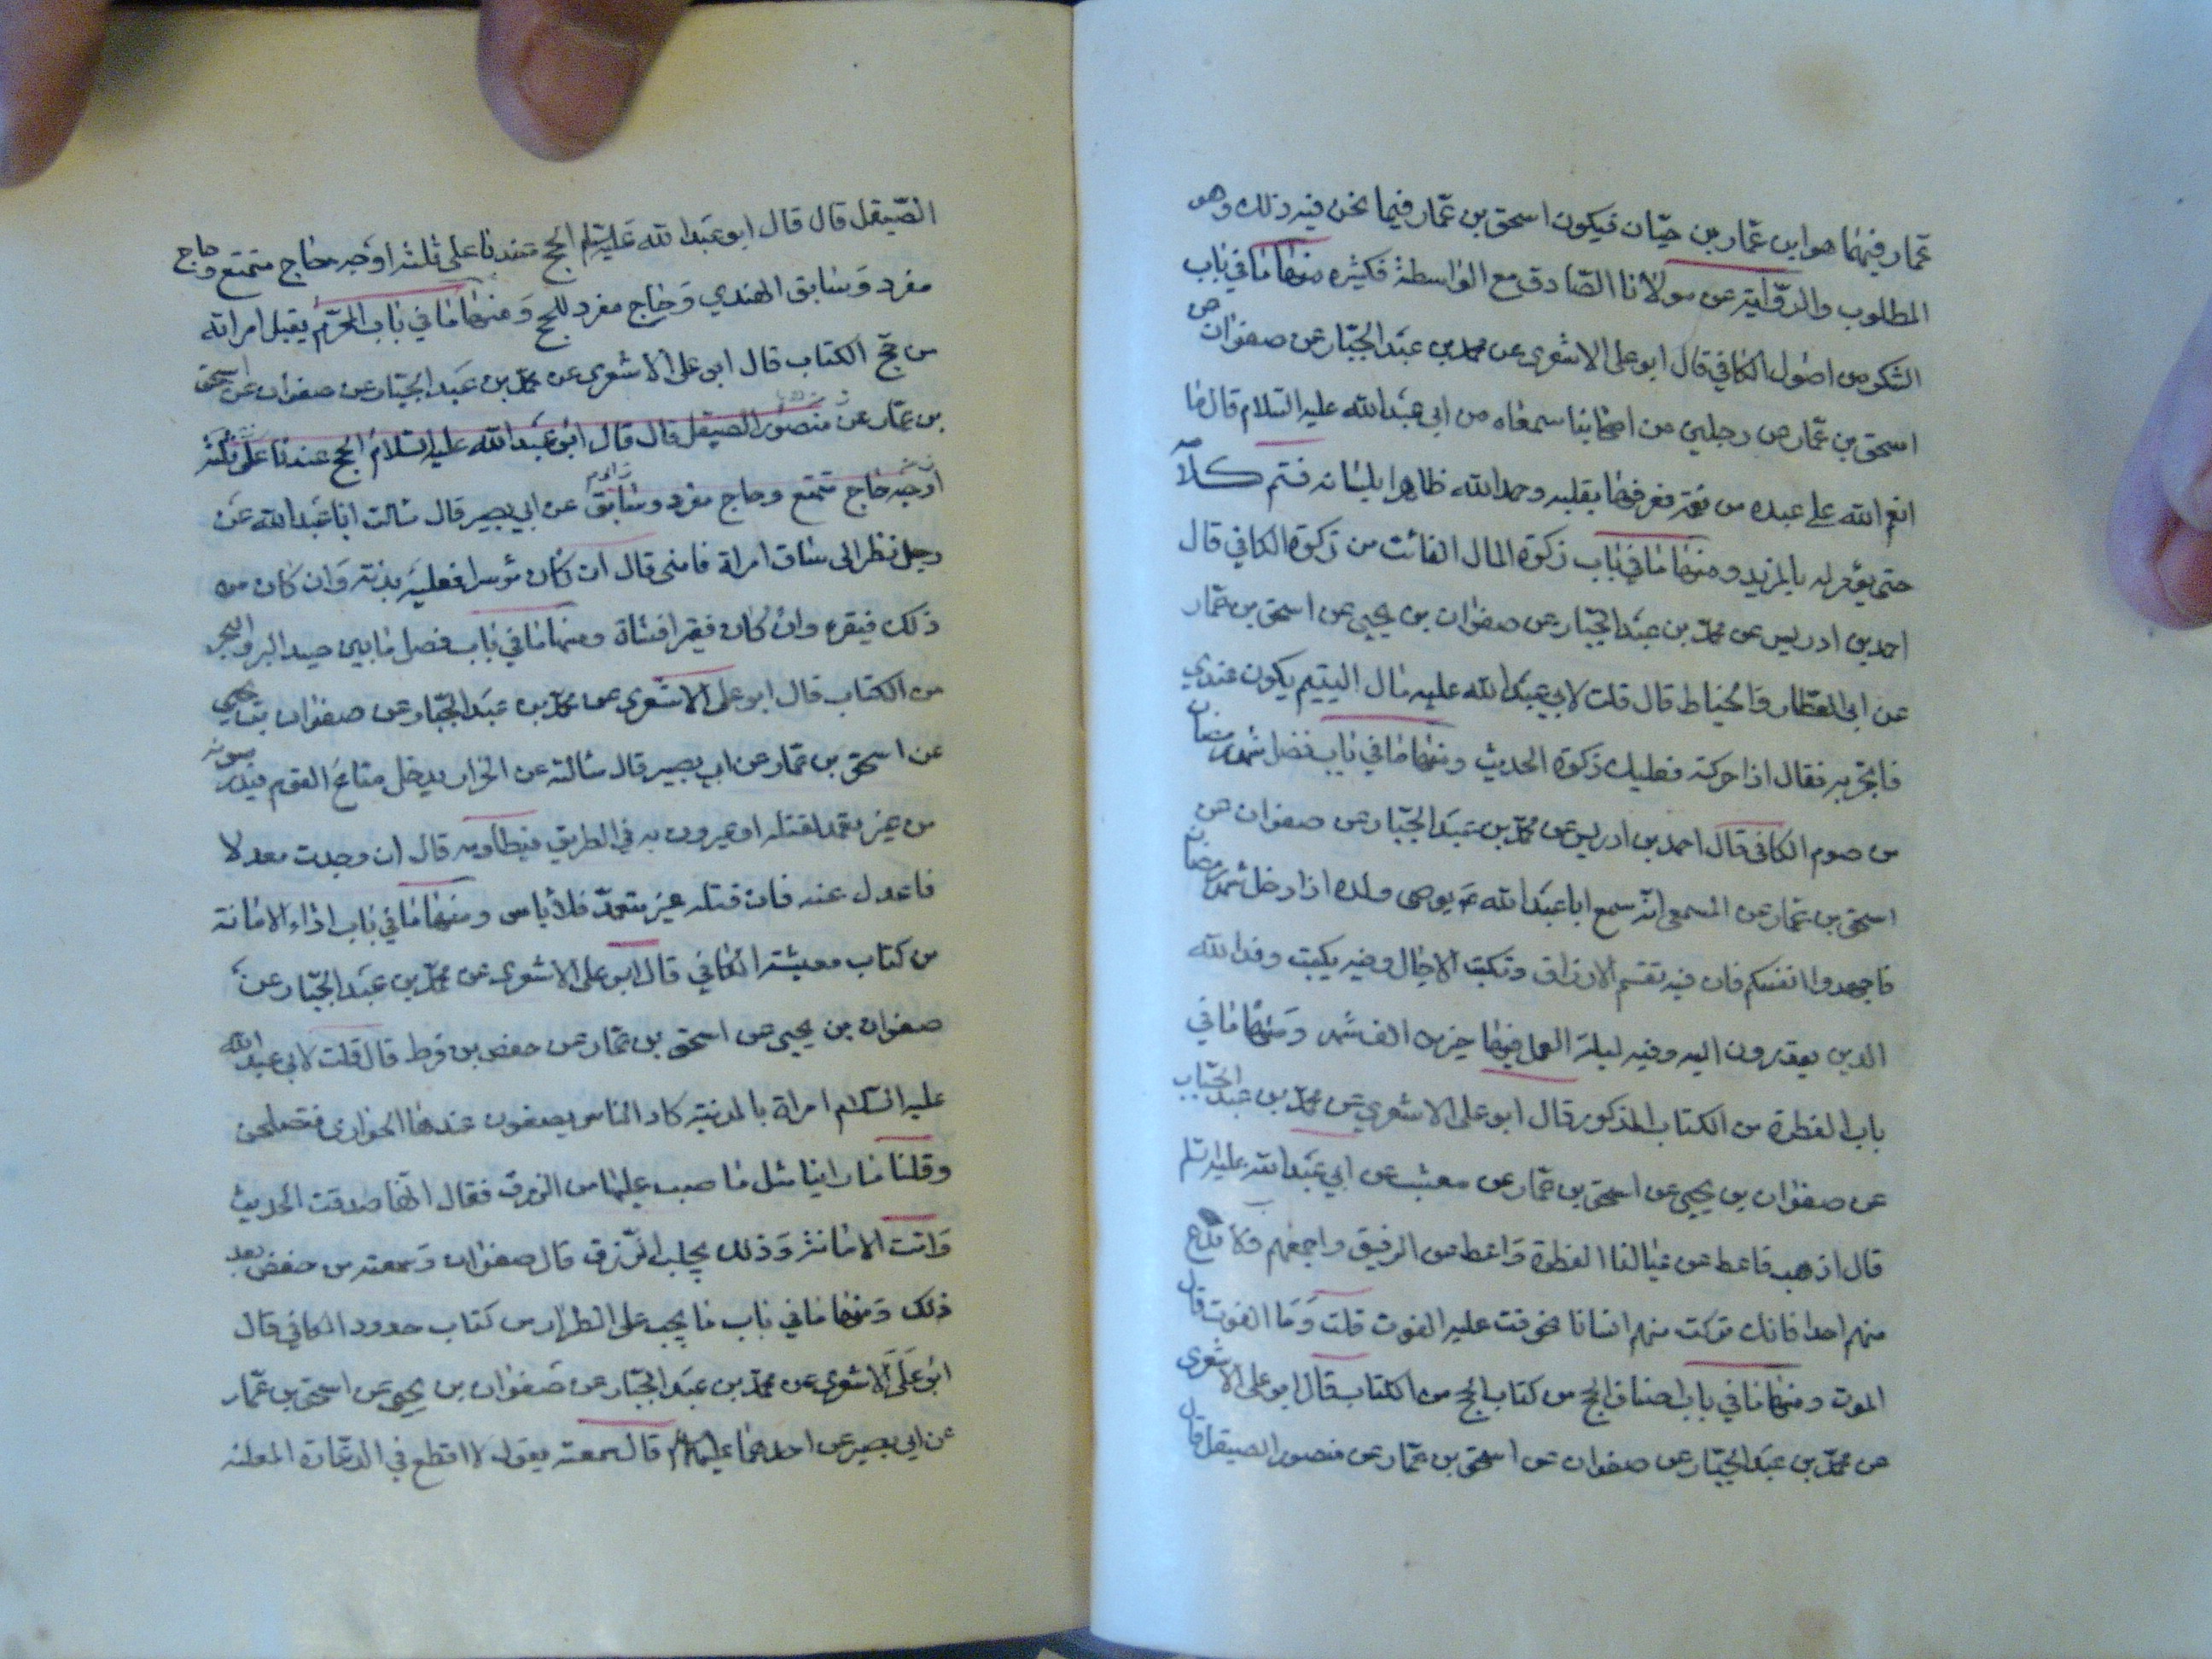 عمار فيهما هو ابن عمار بن حيّان فيكون اسحق بن عمّار فيما نحن فيه ذلك وهو
المطلوب والروايته عن مولانا الصّادق مع الواسطة فكثيره منها ما في باب
الشكر من اصول الكافي قال ابو على الاشعرى عن محمد بن عبد الجبّار عن صفوان عن
اسحق بن عمّار عن رجلين من اصحابنا سمعناه من ابي عبد الله عليه السلام قال ما
انعم الله على عبده من نعمة فعرفها بقلبه وحمد الله ظاهرا بلسانه فتم كلامه
حتى يؤمر له بالمزيد ومنها ما في باب زكوة المال الغائب من زكوة الكافي قال
احمد بن ادريس عن محمّد بن عبد الجبّار عن صفوان بن يحيى عن اسحق بن عمّار
عن ابى العطار والحنياط قال قلت لابي عبد الله عليه مال اليتيم يكون عندي
فاتجر به فقال اذا حركته فعليك زكوة الحديث ومنها ما في باب فضل شهر رمضان
من صوم الكافي قال احمد بن ادريس عن محمّد بن عبد الجبّار عن صفوان عن
اسحق بن عمّار عن المسمعى انه سمع ابا عبد الله ع يوصى ولده اذا دخل شهر رمضان
فاجهدوا انفسكم فان فيه تقسم الارزاق وتكتب الاجال وفيه يكتب وفد الله
الذين يفدون اليه وفيه ليلة العمل فيها خير من الف شهر ومنها ما في
باب الفطرة من الكتاب المذكور قال ابو على الاشعري عن محمّد بن عبد الجبّار
عن صفوان بن يحيى عن اسحق بن عمّار عن معتب عن ابي عبد الله عليه السلم
قال اذهب فاعط عن عيالنا الفطرة واعط عن الرقيق واجمعهم ولا تدع
منهم احدا فانك ان تركت منهم انسانا تخوفت عليه الفوت قلت وما الفوت قال
الموت ومنها ما في باب اصناف الحج من كتاب الحج من الكتاب قال ابو على الاشعرى
عن محمّد بن عبد الجبّار عن صفوان عن اسحق بن عمّار عن منصور الصيقل قال
الصّيقل قال قال ابو عبد الله عليه السلم الحج عندنا على ثلثة اوجه حاج متمتع وحاج
مفرد وسابق الهندي وحاج مفرد للحج ومنها ما في باب المحرم يقبل امراته
من حج الكتاب قال ابو على الاشعرى عن محمّد بن عبد الجبّار عن صفوان عن اسحق
بن عمّار عن منصور الصيقل قال قال ابو عبد الله عليه السلام الحج عندنا على ثلثة
اوجه حاج متمتع وحاج مفرد وسابق عن ابي بصير قال سالت ابا عبد الله عن
رجل نظر الى ساق امراة فامنى قال ان كان مؤسرا فعليه بدنة وان كان من
ذلك فبقرة وان كان فقيرا فشاة ومنها ما في باب فصل ما بين صيد البر والبحر
من الكتاب قال ابو على الاشعرى عن محمّد بن عبد الجبّار عن صفوان بن يحيى
عن اسحق بن عمّار عن ابي بصير قال سالته عن الجراد يدخل متاع القوم فيدرسونه
من غير تعمد لقتله او يمرون به في الطريق فيطاونه قال ان وجدت معدلا
فاعدل عنه فان قتلته غير متعمّد فلا باس ومنها ما في باب اداء الامانة
من كتاب معيشة الكافي قال ابو على الاشعرى عن محمّد بن عبد الجبّار عن
صفوان بن يحيى عن اسحق بن عمّار عن حفص بن قرط قال قلت لابي عبد الله
عليه السلام امراة بالمدينة كان الناس يضعون عندها الجوارى فتصلحهن
وقلنا ما راينا مثل ما صب عليها من الرزق فقال انها صدقت الحديث
وادّت الامانة وذلك يجلب الرّزق قال صفوان وسمعته من حفص بعد
ذلك ومنها ما في باب ما يجب على الطرار من كتاب حدود الكافي قال
ابو على الاشعرى عن محمّد بن عبد الجبّار عن صفوان بن يحيى عن اسحق بن عمّار
عن ابي بصير عن احدهما عليهما السلام قال سمعته يقول لا اقطع في الدغارة المعلنة